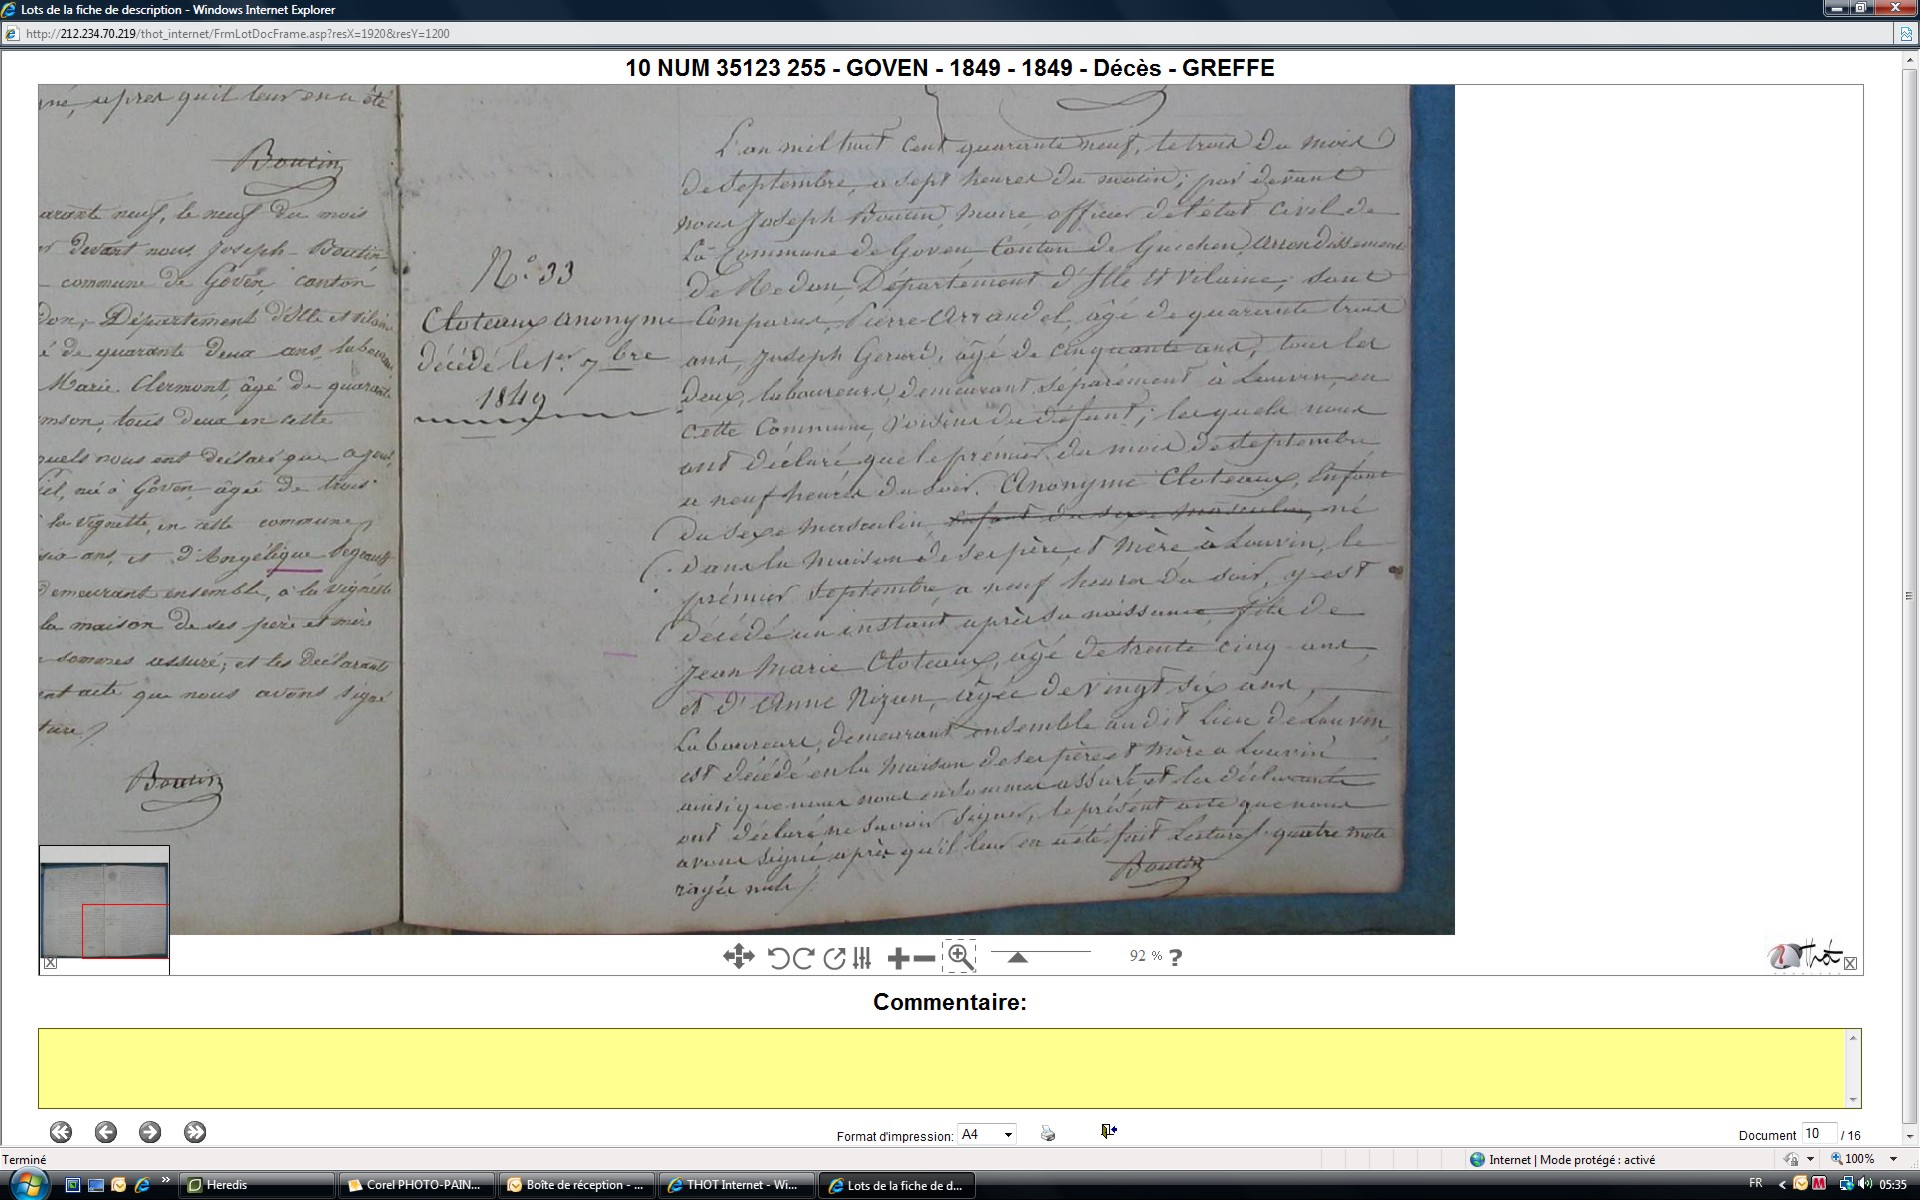 Lots de la fiche de description - Windows Internet Explorer
http://212.234.70.219/thot_internet/FrmLotDocFrame.asp?resX=1920&resY=1200
10 NUM 35123 255 - GOVEN - 1849 - 1849 - Décès - GREFFE
né, après qu'il leur en a été
Boutin
arante neuf, le neuf du mois
r devant nous, Joseph Boutin
commune de Goven, canton
don, Département d'Ille et Vilaine
é de quarante deux ans, laboureur
Marie Clermont, âgé de quarante
tous deux en cette
quels nous ont déclaré que
né à Goven, âgée de trois
la Vignette, en cette commune,
ans, et d'Angélique
demeurant ensemble, à la Vignette
la maison de ses père et mère
sommes assuré; et les déclarants
ent acte que nous avons signé
ture /
Boutin
N° 33
Cloteaux anonyme
décédé le 1er 7bre
1849
L'an mil huit cent quarante neuf, le trois du mois
de septembre, a sept heures du matin; par devant
nous Joseph Boutin, maire, officier de l'état civil de
La Commune de Goven, Canton de Guichen, arrondissement
de Redon, Département d'Ille et Vilaine; sont
Comparus, Pierre Arrandel, âgé de quarante trois
ans, Joseph Gerard, âgé de cinquante ans, tous les
deux, laboureurs, demeurant séparément à Louvin, en
cette Commune, voisins du défunt; lesquels nous
ont déclaré que le prémier du mois de septembre,
a neuf heures du soir, Anonyme Cloteaux, Enfant
du sexe masculin enfant du sexe masculin, né
dans la maison de ses père et mère à Louvin, le
prémier septembre, a neuf heures du soir, y est
décédé un instant après sa naissance, fils de
Jean Marie Cloteaux, âgé de trente cinq ans,
et d'Anne Nizan, âgée de vingt six ans,
Laboureurs, demeurant ensemble au dit lieu de Louvin,
est décédé en la maison de ses père et mère a Louvin
ainsi que nous nous en sommes assuré et les déclarants
ont déclaré ne savoir signer, le présent acte que nous
avons signé après qu'il leur en a été fait Lecture / quatre mots
rayés nuls /
Boutin
92 % ?
Thot
Commentaire:
Format d'impression: A4
Document 10 / 16
Terminé
Internet | Mode protégé : activé
100%
Heredis
Corel PHOTO-PAIN...
Boîte de réception - ...
THOT Internet - Wi...
Lots de la fiche de d...
FR
05:35